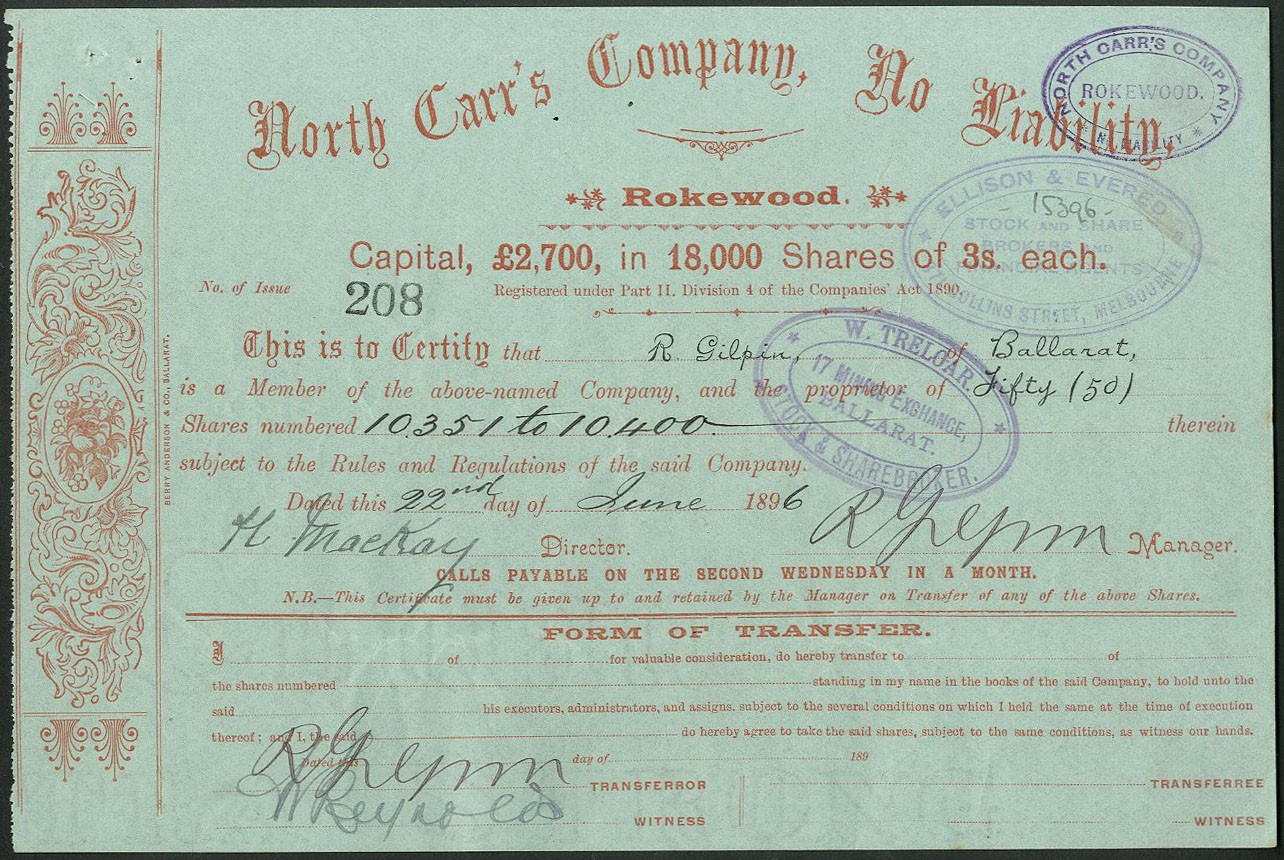 North Carr's Company, No Liability,
NORTH CARR'S COMPANY
ROKEWOOD.
NO LIABILITY
Rokewood.
ELLISON & EVERED
- 15396 -
STOCK AND SHARE
BROKERS AND
FINANCIAL AGENTS
COLLINS STREET, MELBOURNE
Capital, £2,700, in 18,000 Shares of 3s. each.
No. of Issue 208 Registered under Part II. Division 4 of the Companies' Act 1890.
This is to Certify that R. Gilpin, of Ballarat,
is a Member of the above-named Company, and the proprietor of Fifty (50)
Shares numbered 10.351 to 10.400. therein
subject to the Rules and Regulations of the said Company.
W. TRELOAR.
17 MINING EXCHANGE,
BALLARAT.
STOCK & SHAREBROKER.
Dated this 22nd day of June 1896
H Mackay Director. R Gilpin Manager.
CALLS PAYABLE ON THE SECOND WEDNESDAY IN A MONTH.
N.B.—This Certificate must be given up to and retained by the Manager on Transfer of any of the above Shares.
BERRY ANDERSON & CO., BALLARAT.
FORM OF TRANSFER.
I of for valuable consideration, do hereby transfer to of
the shares numbered standing in my name in the books of the said Company, to hold unto the
said his executors, administrators, and assigns. subject to the several conditions on which I held the same at the time of execution
thereof; and I, the said do hereby agree to take the said shares, subject to the same conditions, as witness our hands.
Dated this day of 189
R Gilpin TRANSFERROR TRANSFERREE
Reynolds WITNESS WITNESS